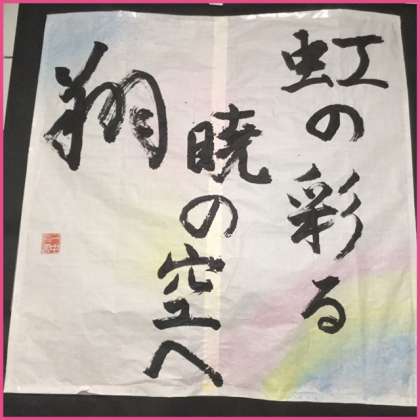 虹の彩る
暁の空へ
翔